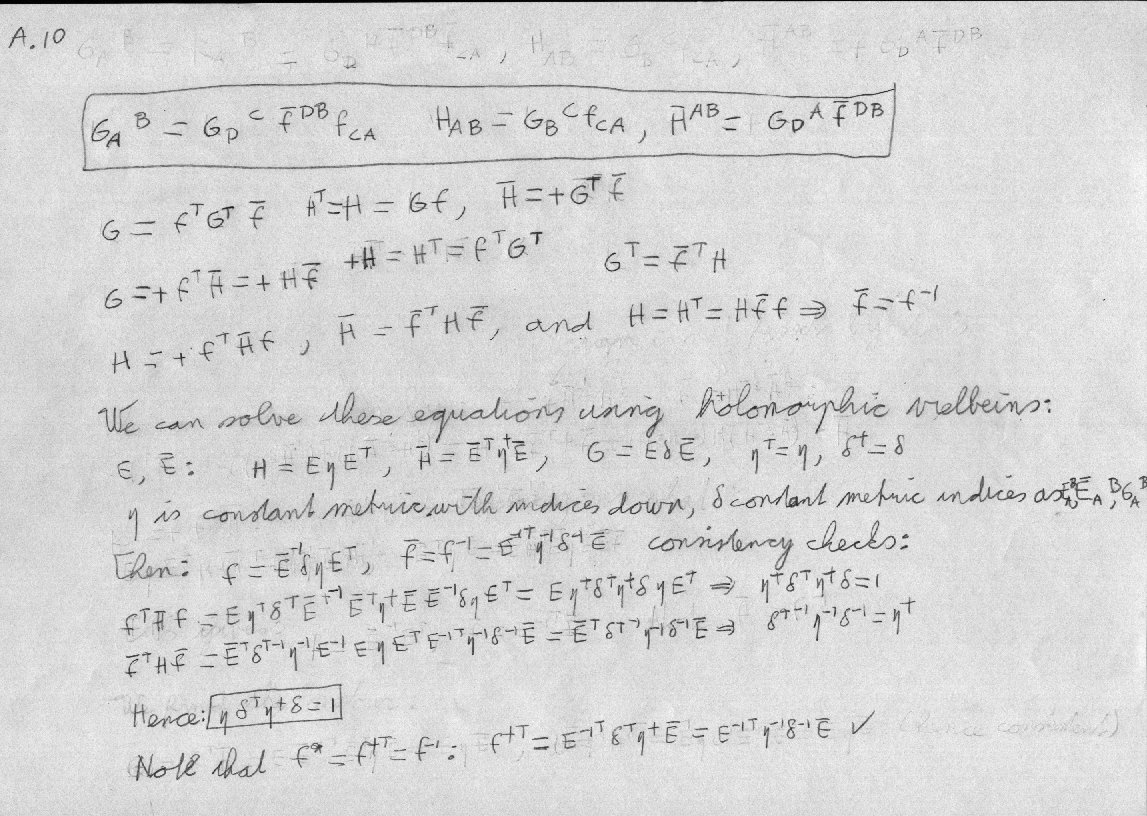 A.10
G_A^B = G_D^C f̄^{DB} f_{CA}   H_{AB} = G_B^C f_{CA}, H̄^{AB} = G_D^A f̄^{DB}
G = f^T G^T f̄   H^T = H = Gf,   H̄ = +G^T f̄
G = + f^T H̄ = + H f̄   +H = H^T = f^T G^T   G^T = f̄^T H
H = + f^T H̄ f ,   H̄ = f̄^T H f̄, and   H = H^T = H f̄ f ⇒ f̄ = f^{-1}
We can solve these equations using holomorphic vielbeins:
E, Ē:   H = E η E^T, H̄ = Ē^T η^† Ē,   G = E δ Ē,   η^T = η, δ^† = δ
η is constant metric with indices down, δ constant metric indices as
Then: f = Ē^{-1} δ η E^T,   f̄ = f^{-1} = E^{-1T} η^{-1} δ^{-1} Ē   consistency checks:
f^T H̄ f = E η^T δ^T Ē^{T-1} Ē^T η^† Ē Ē^{-1} δ η E^T = E η^T δ^T η^† δ η E^T ⇒ η^T δ^T η^† δ = 1
f̄^T H f̄ = Ē^T δ^{T-1} η^{-1} E^{-1} E η E^T E^{-1T} η^{-1} δ^{-1} Ē = Ē^T δ^{T-1} η^{-1} δ^{-1} Ē ⇒ δ^{T-1} η^{-1} δ^{-1} = η^†
Hence: η δ^T η^† δ = 1
Note that f* = f^{†T} = f^{-1} :   f^{†T} = E^{-1T} δ^T η^† Ē = E^{-1T} η^{-1} δ^{-1} Ē ✓